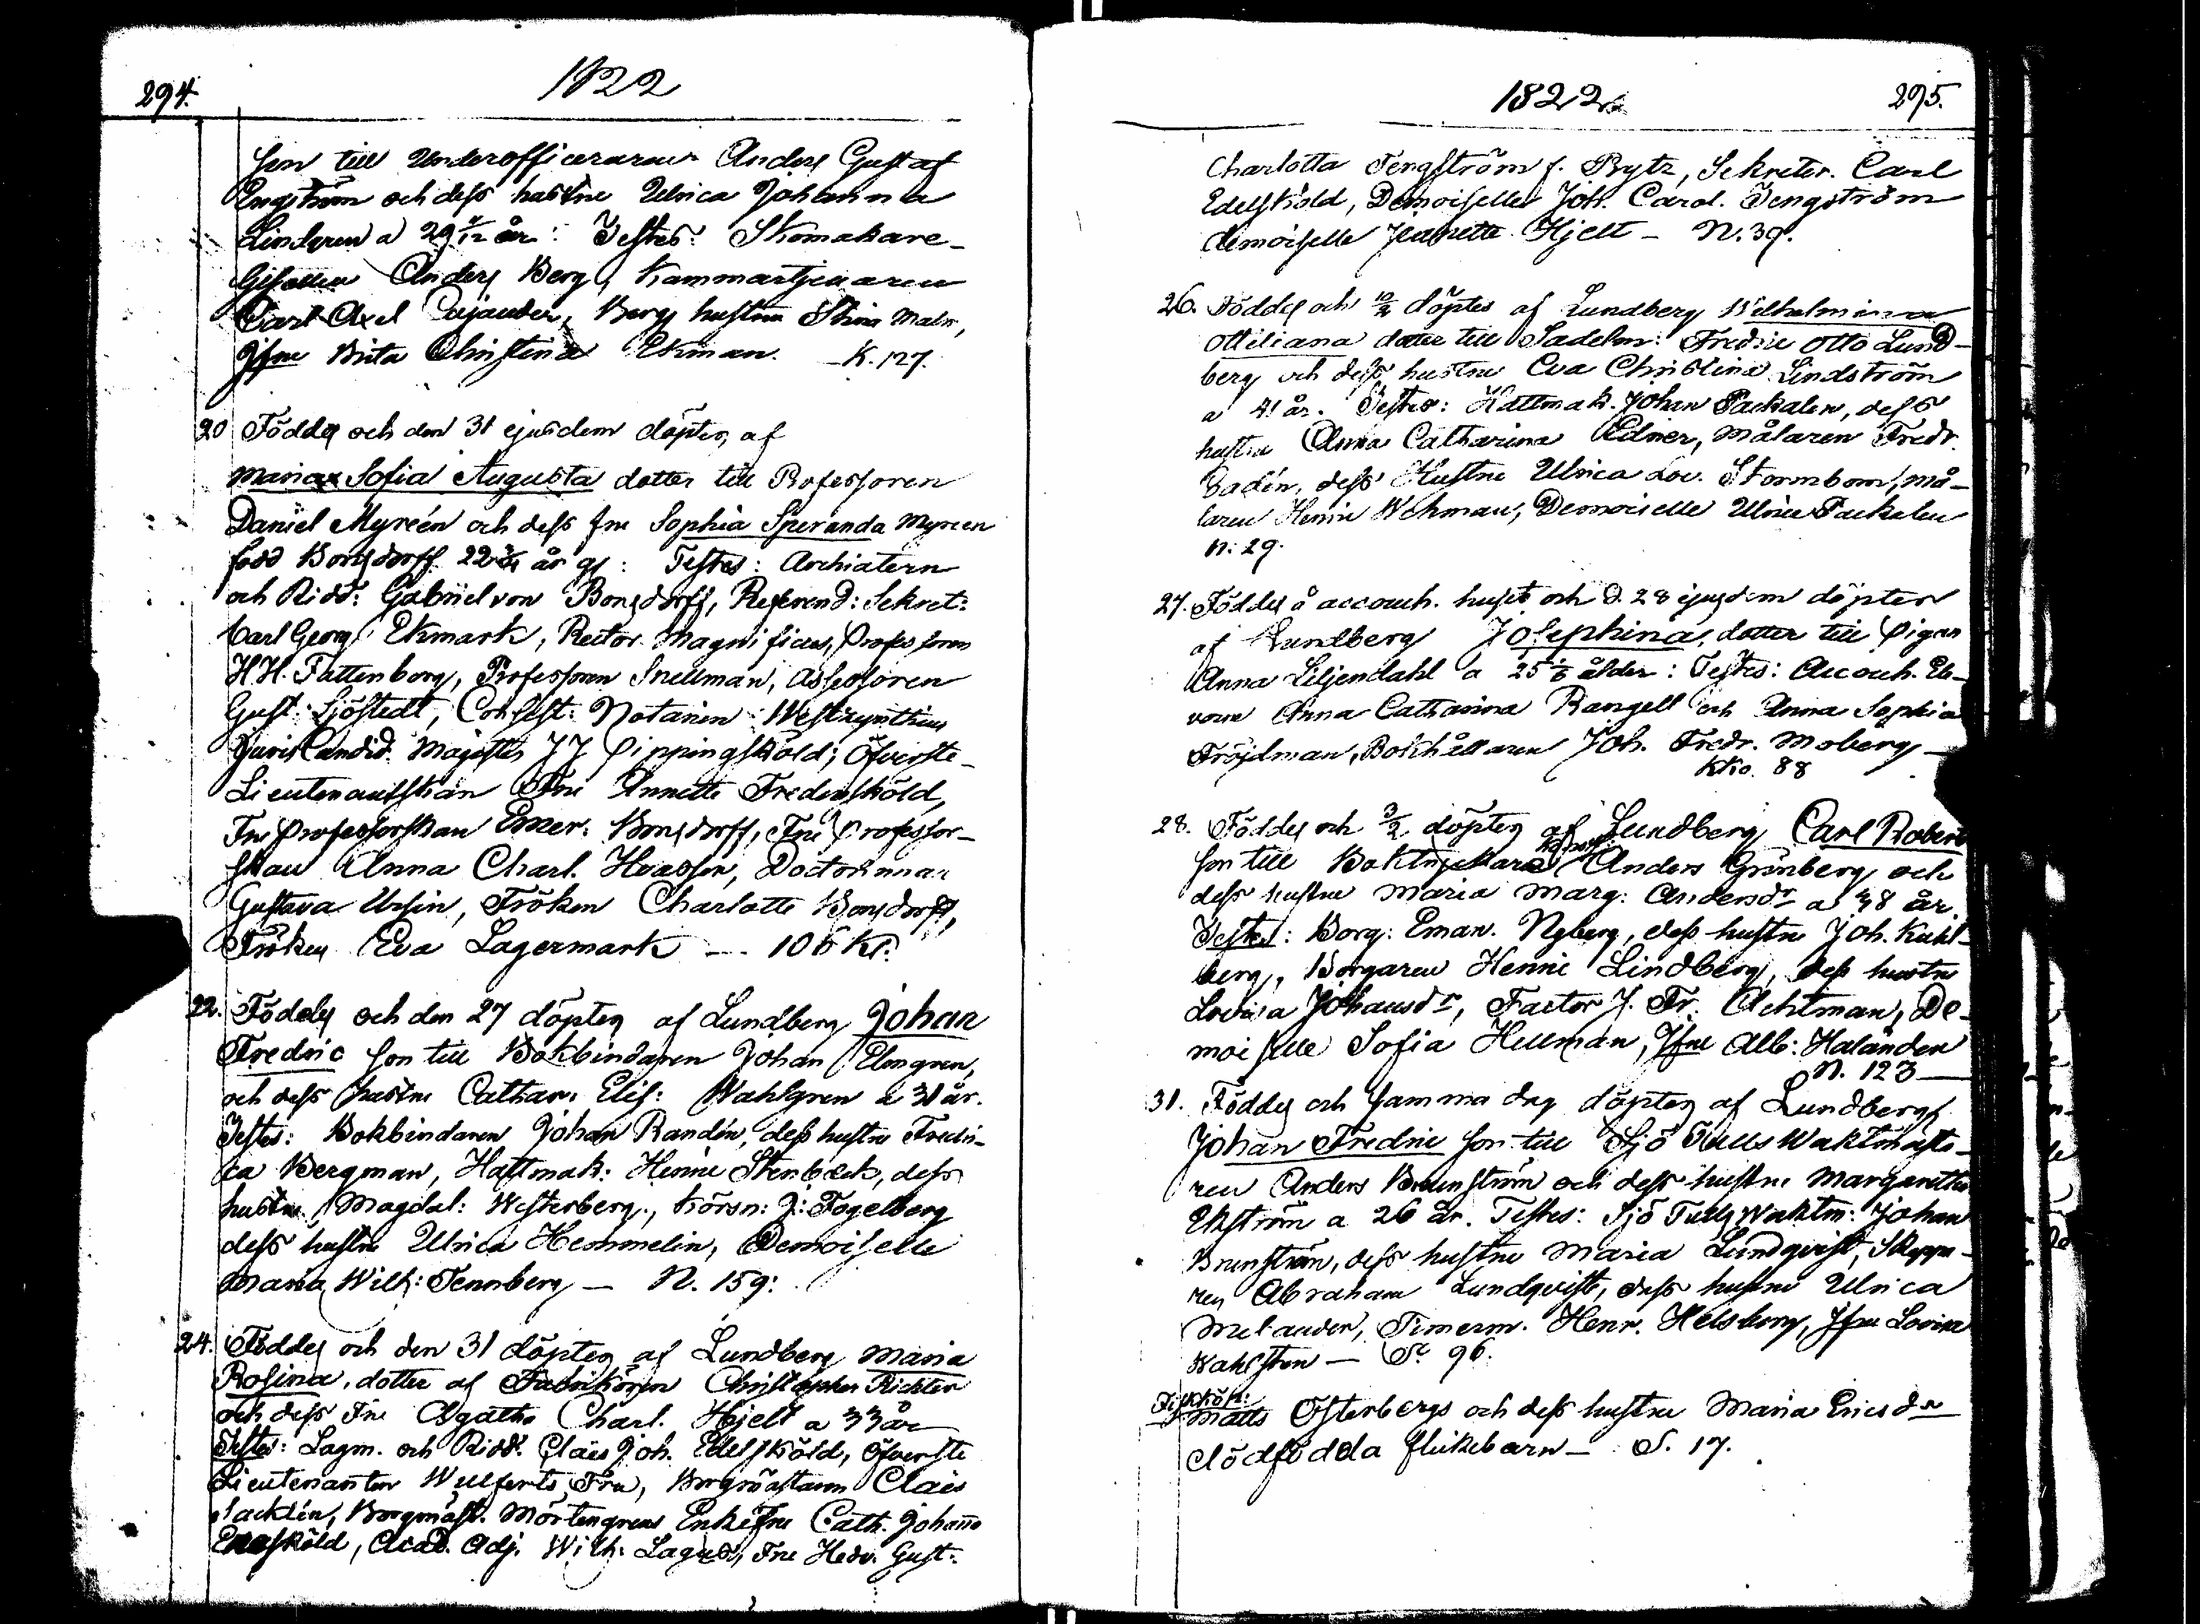 294.
1822
son till Underofficeraren Anders Gustaf
Engström och dess hustru Ulrica Johanna
Lindgren a 29 år: Testes: Skomakare-
Gesällen Anders Berg, Kammartjenaren
Carl Axel Cajander, Bergs hustru Stina Malm,
Jfru Brita Christina Ekman. — K. 127.
20 Föddes och den 31 ejusdem döptes af
Maria Sofia Augusta dotter till Professoren
Daniel Myréen och dess fru Sophia Speranda Myreen
född Bonsdorff 22 år gl: Testes: Archiatern
och Ridd: Gabriel von Bonsdorff, Referend: Sekret:
Carl Georg Ekmark, Rector Magnificus, Professoren
H H. Fattenborg, Professoren Snellman, Assessoren
Gust. Sjöstedt, Consist: Notarien Westzynthius
Juris Candid. Magister J J Pippingsköld; Öfverste-
Lieutenantskan Fru Annette Fredensköld,
Fru Professorskan Emer. Bonsdorff, Fru Professor-
skan Anna Charl. Hvasser, Doctorinnan
Gustava Ursin, Fröken Charlotte Bonsdorff,
Fröken Eva Lagermark — 106 Kl.
22. Föddes och den 27 döptes af Lundberg Johan
Fredric son till Bokbindaren Johan Elmgren,
och dess hustru Cathar. Elis: Wahlgren a 31 år.
Testes: Bokbindaren Johan Randén, dess hustru Fredri-
ca Bergman, Hattmak: Henric Stenbeck, dess
hustru Magdal: Westerberg, Körsn: J: Fogelberg
dess hustru Ulrica Hemmelin, Demoiselle
Maria Wilh: Tennberg — N. 159:
24. Föddes och den 31 döptes af Lundberg Maria
Rosina, dotter af Fabrikören Christopher Richter
och dess Fru Agatha Charl. Hjelt a 33 år
Testes: Lagm. och Ridd. Claës Joh. Edelsköld, Öfverste
Lieutenanten Wulferts Fru, Borgmästaren Claës
Sacklén, Borgmäst. Mörtengrens Enkefru Cath. Johanna
Ehrnsköld, Acad. Adj. Wilh. Lagus, Fru Hedv. Gust:
1822
295.
Charlotta Tengström f. Bytz, Sekreter. Carl
Edelsköld, Demoiselle Joh. Carol. Tengström
demoiselle Jeanette Hjelt — N. 39.
26. Föddes och 10/2 döptes af Lundberg Wilhelmina
Ottiliana dotter till Sadelm: Fredric Otto Lund-
berg och dess hustru Eva Christina Lindström
a 41 år. Testes: Hattmak. Johan Packalen, dess
hustru Anna Catharina Edner, Målaren Fredr.
dess Hustru Ulrica Lov. Stormbom, må-
laren Henric Wehman, Demoiselle Ulrica Packalen
N: 29.
27. Föddes å accouch. huset och d. 28 ejusdem döptes
af Lundberg Josephina, dotter till Pigan
Anna Liljendahl a 25 ålder: Testes: Accouch. Ele-
verne Anna Catharina Rangell och Anna Sophia
Fröjdman, Bokhållaren Joh. Fredr. Moberg —
Kko. 88
28. Föddes och 3/2 döptes af Lundberg Carl Robert
son till Boktryckare Anders Grönberg och
dess hustru Maria Marg: Andersdr a 38 år
Testes: Borg: Eman. Nyberg, dess hustru Joh. Kuhl-
berg, Borgaren Henric Lindberg, dess hustru
Lovisa Johansdr, Factor J. Fr. Achtman, De-
moiselle Sofia Hellman, Jfru Alb: Halander
N. 123 —
31. Föddes och samma dag döptes af Lundberg
Johan Fredric son till Sjö Tulls Waktmäste-
ren Anders Brunström och dess hustru Margaretha
Ekström a 26 år. Testes: Sjö Tulls Waktm: Johan
Brunström, dess hustru Maria Lundqvist, Skeppa-
ren Abraham Lundqvist, dess hustru Ulrica
Melander, Timerm. Henr. Helsberg, Jfru Lovisa
Wahlsten — S: 96.
Fiskköp:
Matts Österbergs och dess hustru Maria Ericsdr
dödfödda flickebarn — S. 17.